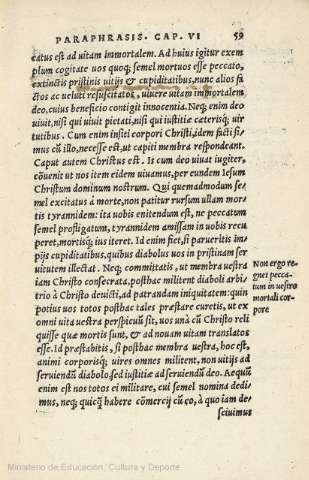 PARAPHRASIS. CAP. VI 59
catus est ad uitam immortalem. Ad huius igitur exem
plum cogitate uos quoq; semel mortuos esse peccato,
extinctis pristinis uitijs & cupiditatibus, nunc alios fa
ctos ac ueluti resuscitatos, uiuere uitam immortalem
deo, cuius beneficio contigit innocentia. Neq; enim deo
uiuit, nisi qui uiuit pietati, nisi qui iustitiæ cæterisq; uir
tutibus. Cum enim insiti corpori Christi, idem facti si=
mus cũ illo, necesse est, ut capiti membra respondeant.
Caput autem Christus est. Is cum deo uiuat iugiter,
cōuenit ut nos item eidem uiuamus, per eundem Iesum
Christum dominum nostrum. Qui quemadmodum se=
mel excitatus à morte, non patitur rursum ullam mor=
tis tyrannidem: ita uobis enitendum est, ne peccatum
semel profligatum, tyrannidem amissam in uobis recu
peret, mortisq; ius iteret. Id enim fiet, si parueritis im=
pijs cupiditatibus, quibus diabolus uos in pristinam ser
uitutem illectat. Neq; committatis, ut membra uestra
iam Christo consecrata, posthac militent diaboli arbi=
trio à Christo deuicti, ad patrandam iniquitatem: quin
potius uos totos posthac tales præstare curetis, ut ex
omni uita uestra perspicuũ sit, uos unà cũ Christo reli
quisse quæ mortis sunt, & ad nouam uitam translatos
esse. Id præstabitis, si posthac membra uestra, hoc est,
animi corporisq; uires omnes militent, non uitijs ad
seruiendũ diabolo, sed iustitiæ ad seruiendũ deo. Aequũ
enim est nos totos ei militare, cui semel nomina dedi=
mus, neq; quicq̃ habere cōmercij cũ eo, à quo iam de=
sciuimus
Non ergo re=
gnet pecca=
tum in uestro
mortali cor=
pore
Ministerio de Educación, Cultura y Deporte